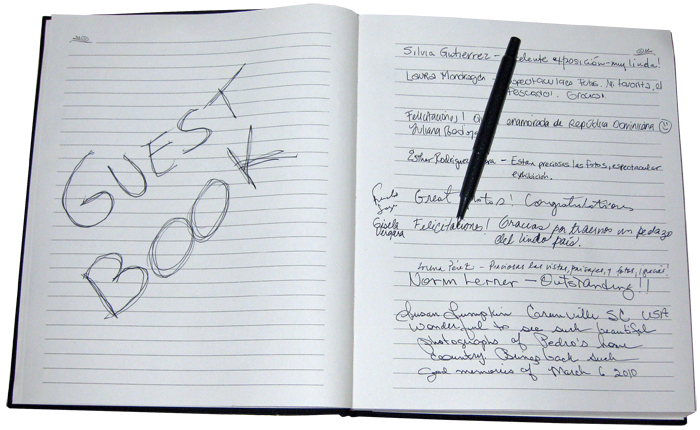 GUEST
BOOK
Silvia Gutierrez - exposición-my linda!
Laura Mondragón fotos. Mi favorita, el
Pescador. Gracias
Felicitaciones! enamorada de República Dominicana
Yuliana
Esther Rodriguez - Estan preciosas las fotos, espectacular
exhibición.
Great Photos! Congratulations
Gisela
Vergara
Felicitaciones! Gracias por traernos un pedazo
del lindo país.
Lorena Páez - Preciosas las vistas, paisajes, y fotos, gracias
Norm Lerner - Outstanding!!
Susan Lumpkin Greenville SC USA
Wonderful to see such beautiful
photographs of Pedro's home
Country Brings back such
good memories of March 6 2010